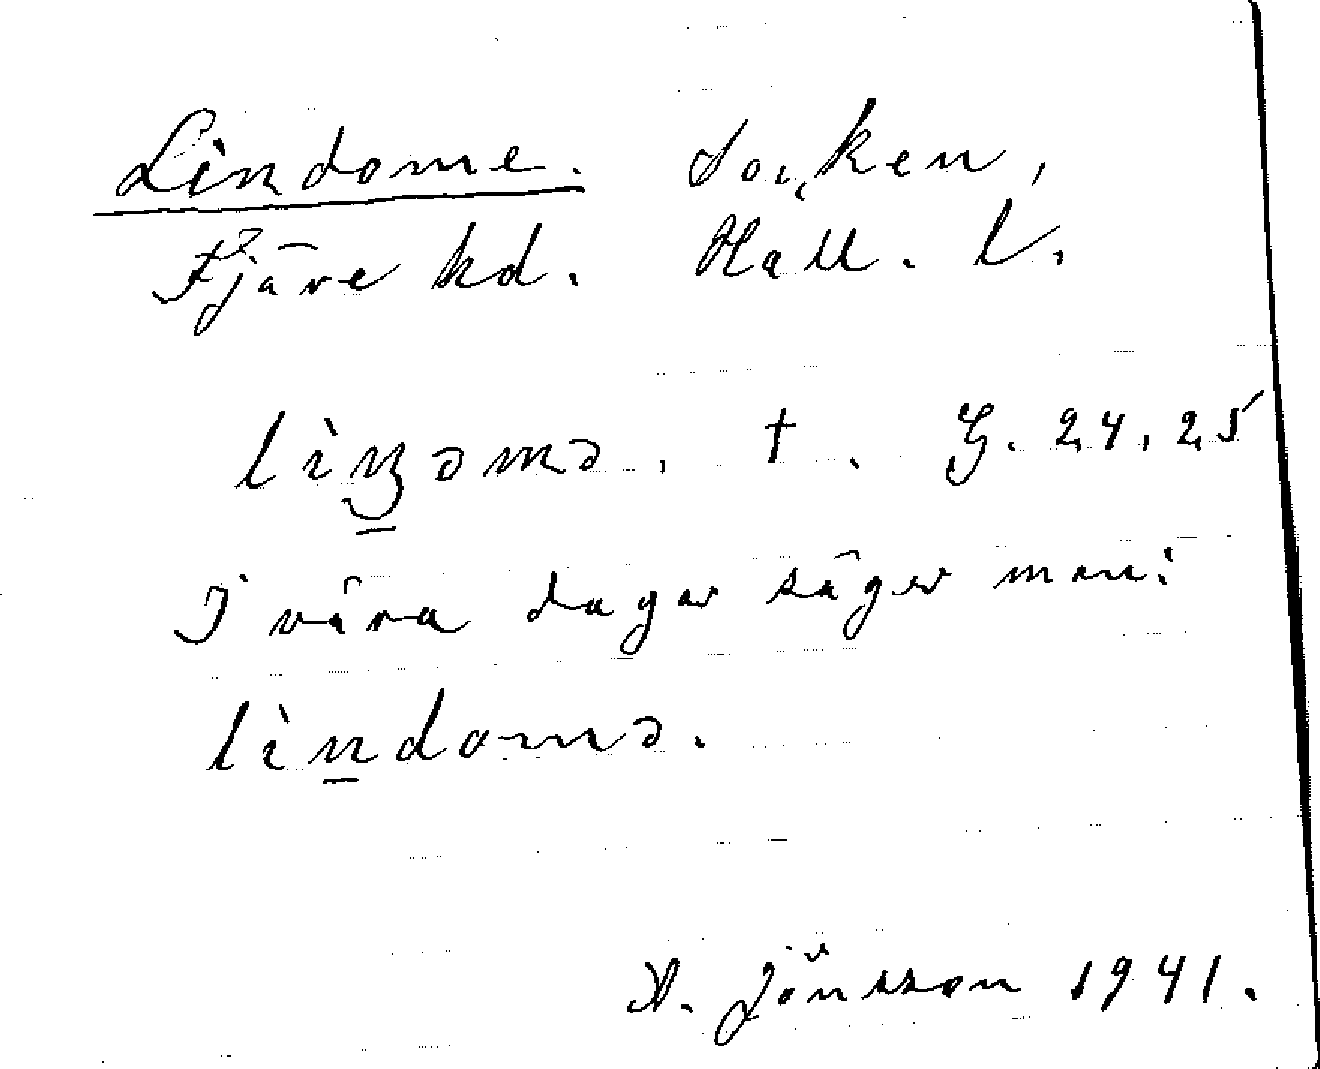 Lindome. Socken,
Fjäre hd. Hall. l.
lìn̠ʒəmə. †. G. 24, 25
I våra dagar säger man:
lìn̠domə.
A. Jönsson 1941.